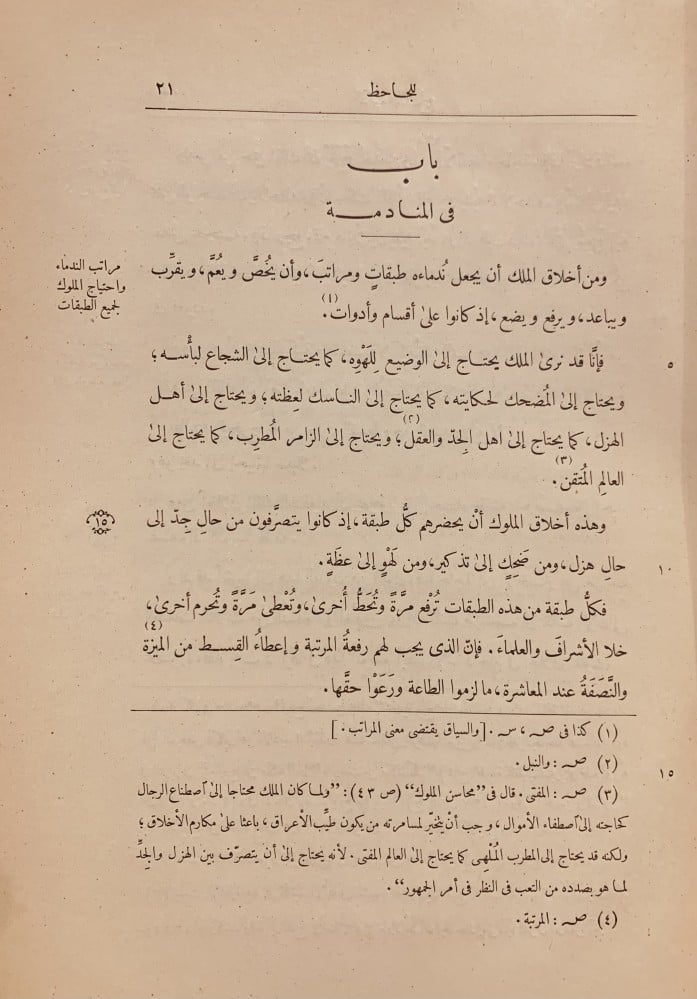 للجاحظ ٢١
باب
فى المنادمة
مراتب الندماء
واحتياج الملوك
لجميع الطبقات
ومن أخلاق الملك أن يجعل نُدماءه طبقاتٍ ومراتبَ، وأن يَخُصَّ ويَعُمَّ، ويقرِّب
ويباعد، ويرفع ويضع، إذ كانوا علىٰ أقسام وأدوات(١).
٥ فإنَّا قد نرىٰ الملك يحتاج إلىٰ الوضيع لِلَهْوِه، كما يحتاج إلىٰ الشجاع لبأْسه؛
ويحتاج إلىٰ المُضحك لحكايته، كما يحتاج إلىٰ الناسك لعِظته؛ ويحتاج إلىٰ أهل
الهزل، كما يحتاج إلىٰ اهل الجدّ والعقل(٢)؛ ويحتاج إلىٰ الزامر المُطرِب، كما يحتاج إلىٰ
العالِم المُتقن(٣).
وهذه أخلاق الملوك أنْ يحضرهم كلُّ طبقة، إذ كانوا يتصرَّفون من حالِ جِدّ إلى
١٥
١٠ حالِ هزل، ومن ضَحِكٍ إلىٰ تذكير، ومن لَهْوٍ إلىٰ عظَةٍ.
فكلُّ طبقة من هذه الطبقات تُرْفع مرَّةً وتُحَطُّ أُخرىٰ، وتُعْطىٰ مَرَّةً وتُحرم أخرىٰ،
خلا الأشراف والعلماء. فإنّ الذى يجب لهم رفعةُ المرتبة وإعطاءُ القِسط من الميزة(٤)
والنَّصَفَةُ عند المعاشرة، ما لزموا الطاعة ورَعَوْا حقَّها.
(١) كذا فى صـ، سـ. [والسياق يقتضى معنى المراتب.]
(٢) صـ: والنبل.
١٥
(٣) صـ: المفتى. قال فى "محاسن الملوك" (ص ٤٣): "ولما كان الملك محتاجا إلىٰ آصطناع الرجال
كحاجته إلىٰ آصطفاء الأموال، وجب أنْ يتخيَّر لمسامرته من يكون طيِّب الأعراق، باعثا علىٰ مكارم الأخلاق؛
ولكنه قد يحتاج إلى المطرب المُلْهى كما يحتاج إلى العالم المفتى. لأنه يحتاج إلى أن يتصرّف بين الهزل والجِدِّ
لما هو بصدده من التعب فى النظر فى أمر الجمهور".
(٤) صـ: المرتبة.